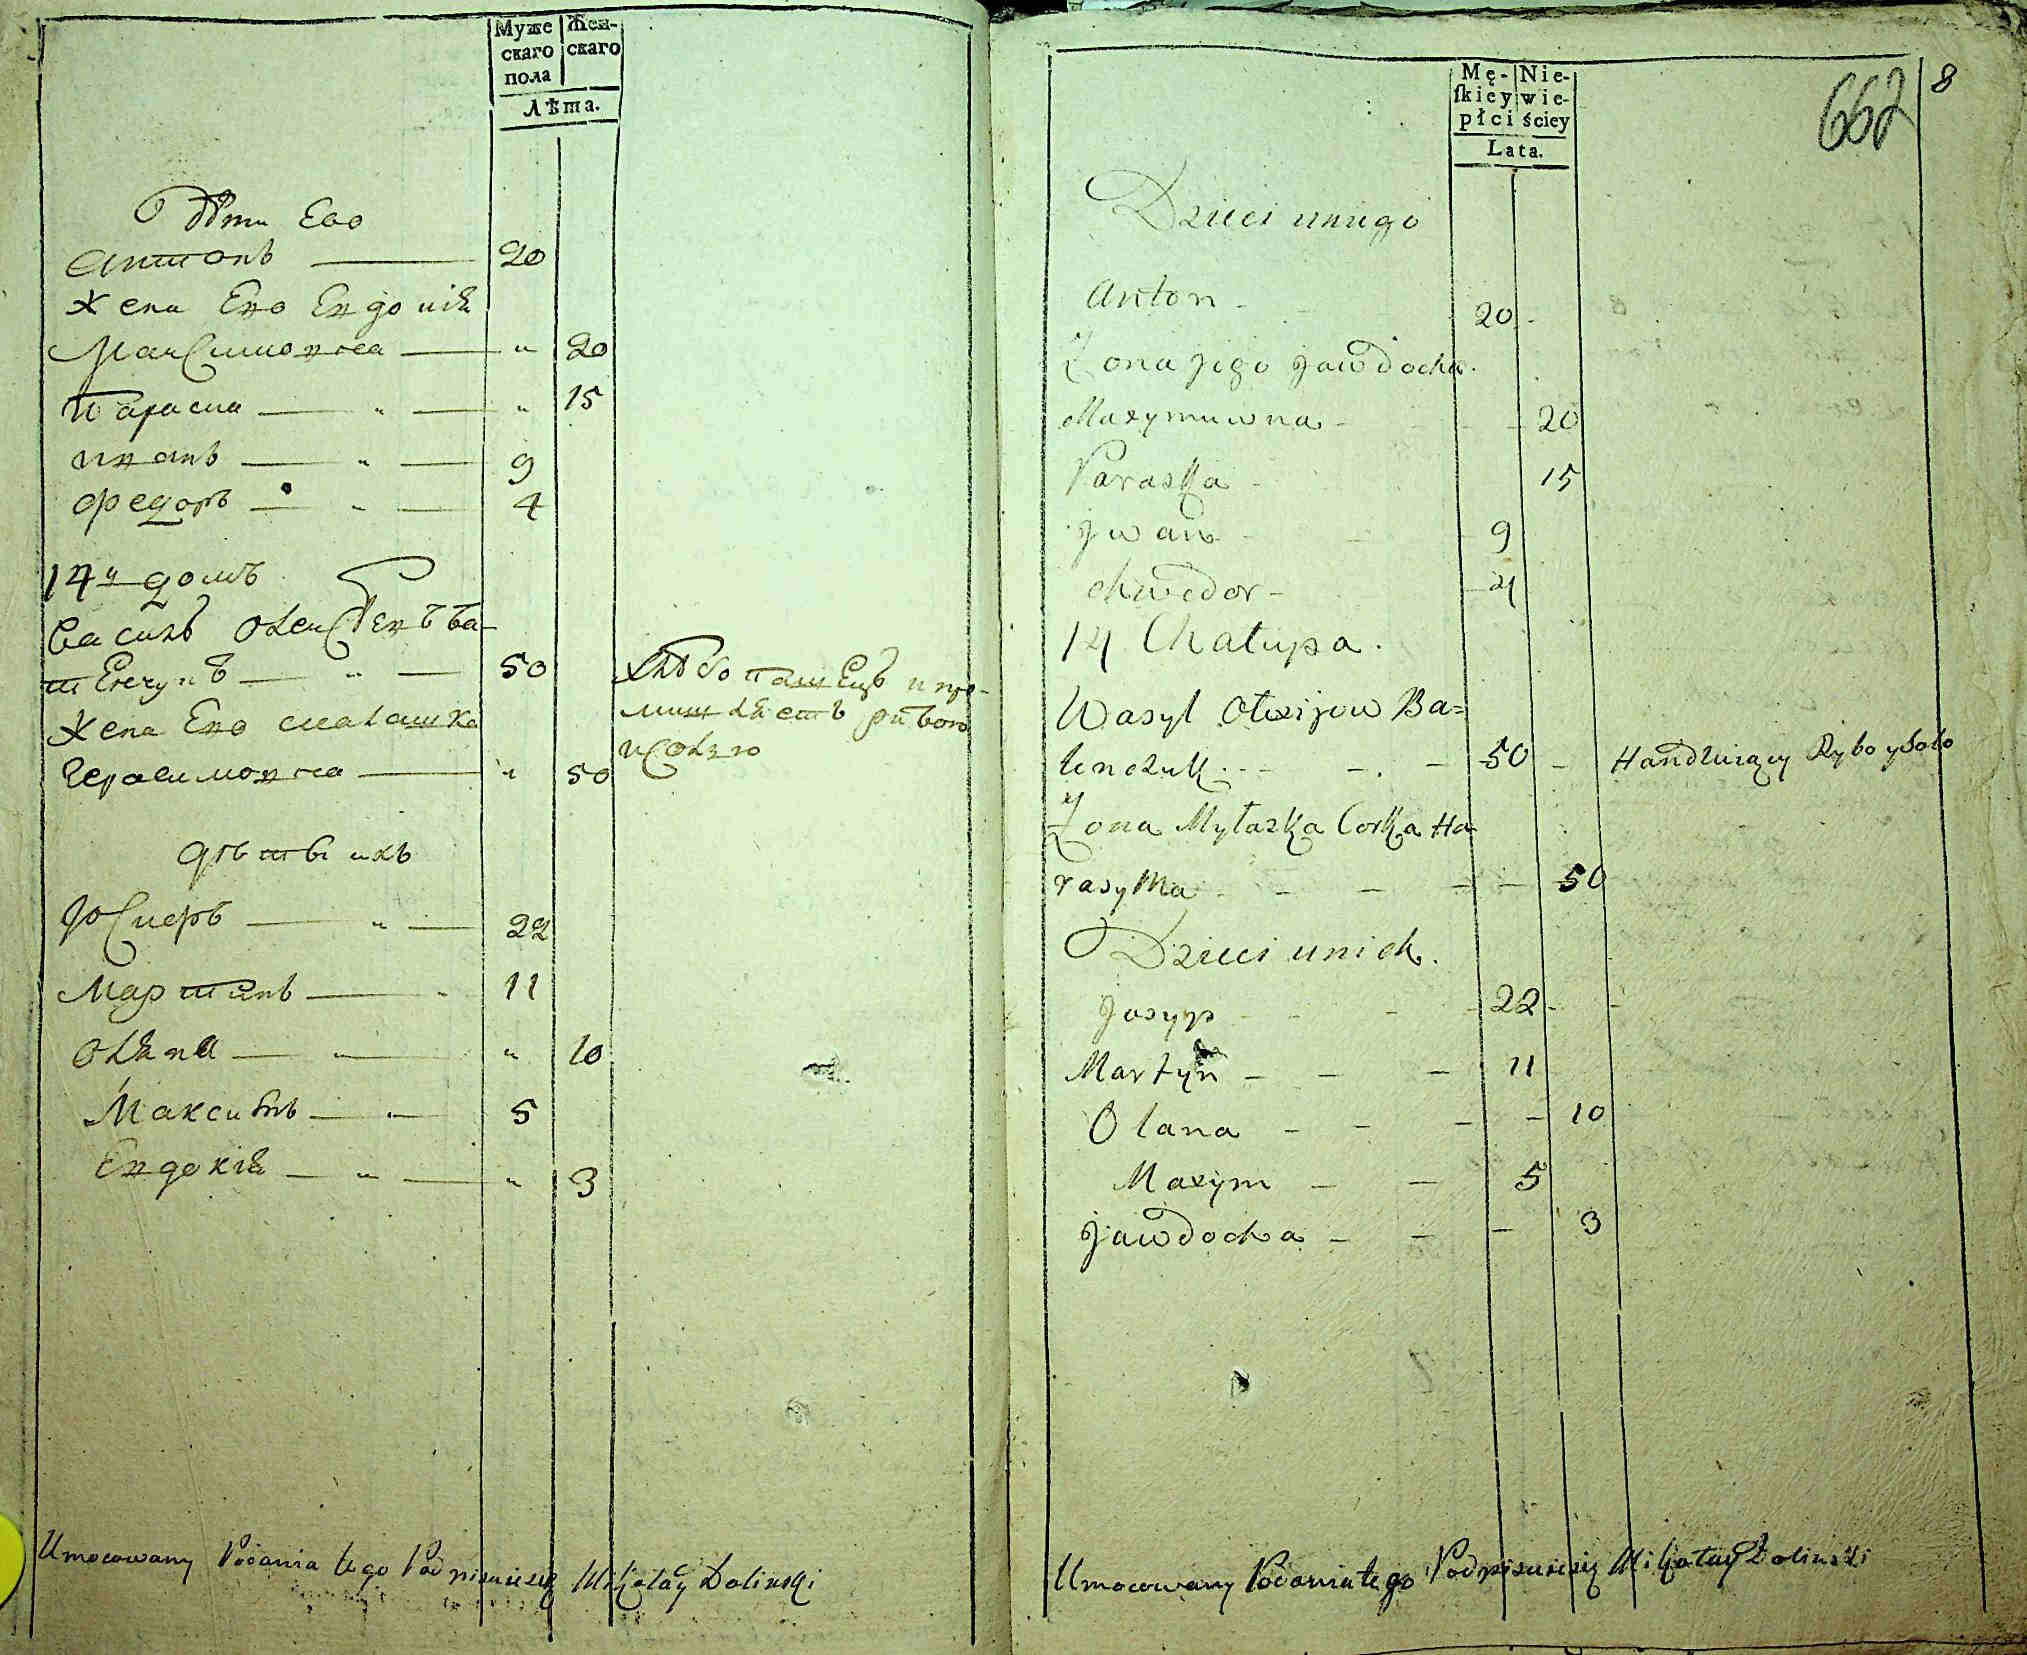 Муже
скаго
пола
Жен-
скаго
Лѣта.
Дѣти Ево
Антонъ 20
Жена Ево Евдокія
Максимовна " 20
Параска " " 15
Иванъ " 9
Федоръ " 4
14й домъ
Василь Олексѣевъ Ба-
тенчукъ " 50
Жена Ево Малашка
Герасимовна " 50
Хлѣбопашецъ и про-
мишляетъ рибою
и солью
дѣти ихъ
Юсиеръ " 22
Мартинъ " 11
Оляна " " 10
Максимъ " 5
Евдокія " " 3
Umocowany Podania tego Podpisuie się Mikołay Dolinski
Mę-
skiey
płci
Nie-
wie-
ściey
Lata.
662
8
Dzieci unugo
Anton 20
Żona Jego Jawdocha
Maxymuwna 20
Paraska 15
Jwan 9
Chwedor 4
14 Chałupa.
Wasyl Olexijow Ba=
tenczuk 50 Handluiący Rybo y Solo
Żona Myłaszka Corka Ha
rasyma 50
Dzieci unich.
Josyp 22
Martyn 11
Olana 10
Maxym 5
Jawdocha 3
Umocowany Podania tego Podpisuie się Mikołay Dolinski